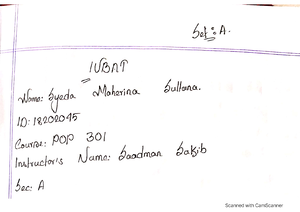 Set: A.
IUBAT
Name: Syeda Maherina Sultana.
ID: 18202045
Course: POP 301
Instructor's Name: Saadman Sakib
Sec: A
Scanned with CamScanner